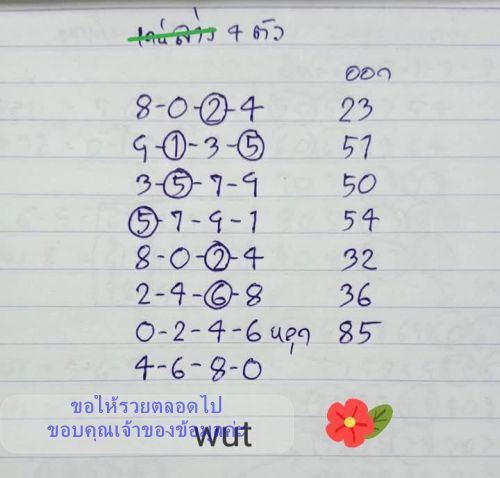 เด่นล่าง 4 ตัว
ออก
8-0-2-4 23
9-1-3-5 51
3-5-7-9 50
5-7-9-1 54
8-0-2-4 32
2-4-6-8 36
0-2-4-6 หลุด 85
4-6-8-0
ขอให้รวยตลอดไป
ขอบคุณเจ้าของข้อมูลค่ะ
wut